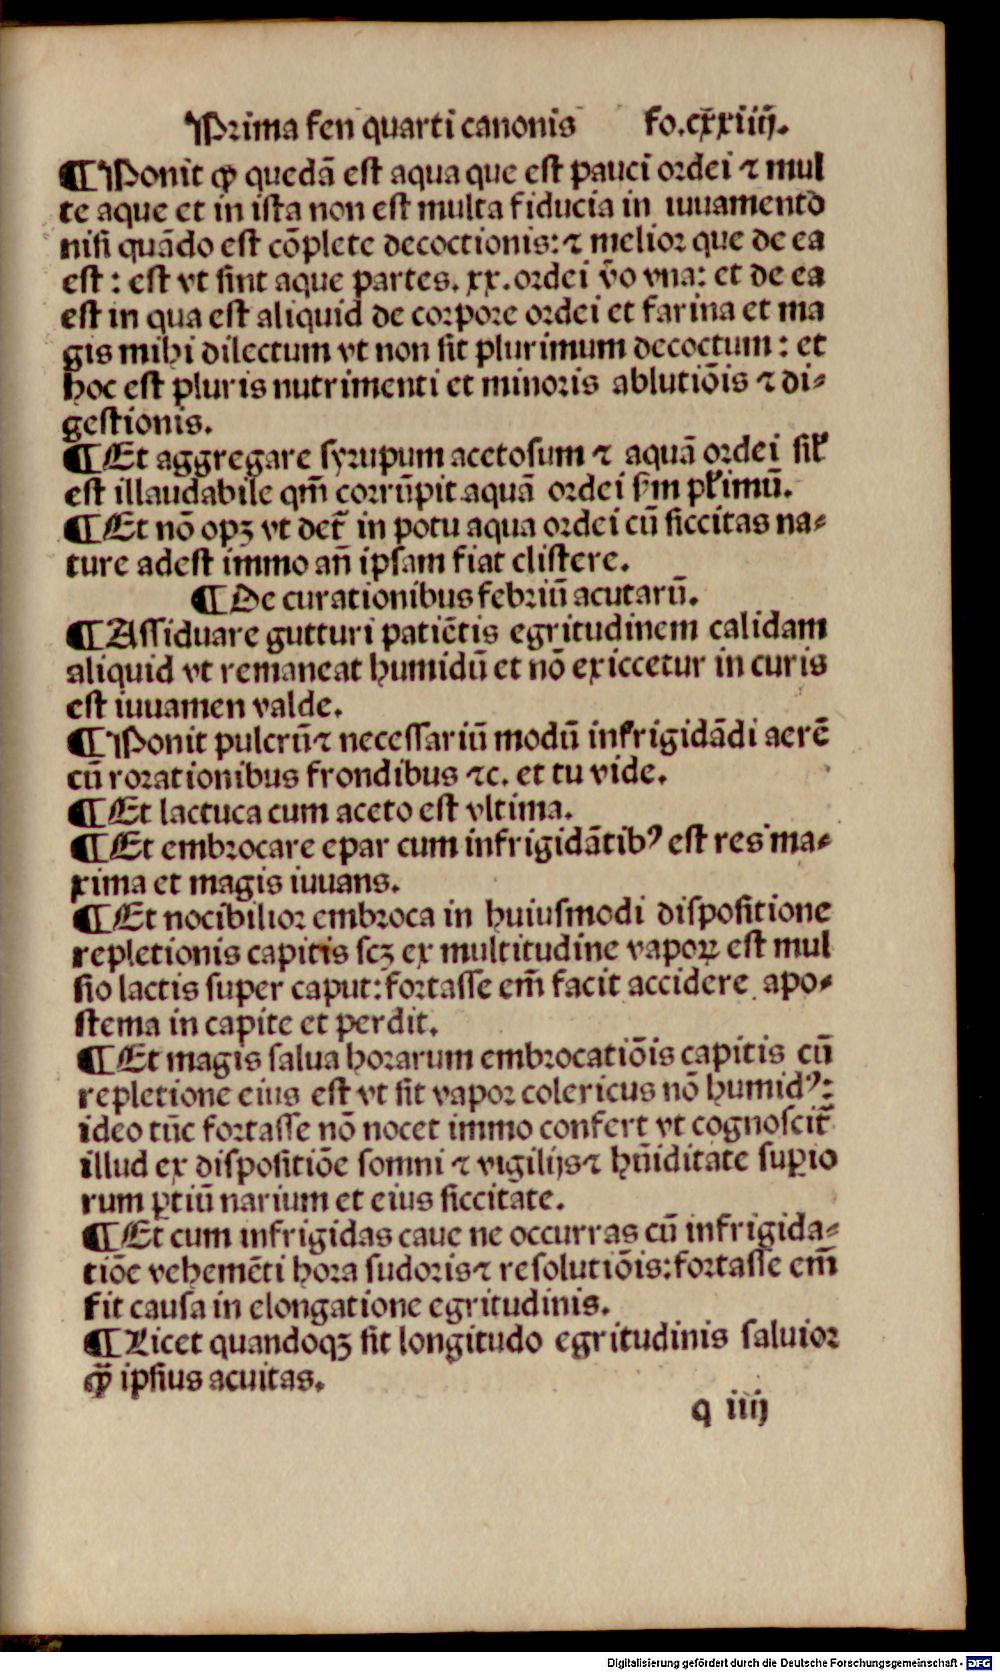 Prima fen quarti canonis fo.cxxiiij.
¶ Ponit ꝙ quedã est aqua que est pauci ordei ⁊ mul
te aque et in ista non est multa fiducia in iuuamento
nisi quãdo est cõplete decoctionis: ⁊ melior que de ea
est: est vt sint aque partes. xx. ordei v̄o vna: et de ea
est in qua est aliquid de corpore ordei et farina et ma
gis mihi dilectum vt non sit plurimum decoctum: et
hoc est pluris nutrimenti et minoris ablutiõis ⁊ di⸗
gestionis.
¶ Et aggregare syrupum acetosum ⁊ aquã ordei sił
est illaudabile qm̃ corrũpit aquã ordei s̃m płimũ.
¶ Et nõ opꝫ vt det̃ in potu aqua ordei cũ siccitas na⸗
ture adest immo añ ipsam fiat clistere.
¶ De curationibus febriũ acutarũ.
¶ Assiduare gutturi patiẽtis egritudinem calidam
aliquid vt remaneat humidũ et nõ exiccetur in curis
est iuuamen valde.
¶ Ponit pulcrũ ⁊ necessariũ modũ infrigidãdi aerẽ
cũ rorationibus frondibus ⁊c. et tu vide.
¶ Et lactuca cum aceto est vltima.
¶ Et embrocare epar cum infrigidãtibꝰ est res ma⸗
xima et magis iuuans.
¶ Et nocibilior embroca in huiusmodi dispositione
repletionis capitis scꝫ ex multitudine vaporꝝ est mul
sio lactis super caput: fortasse em̃ facit accidere apo⸗
stema in capite et perdit.
¶ Et magis salua horarum embrocatiõis capitis cũ
repletione eius est vt sit vapor colericus nõ humidꝰ:
ideo tũc fortasse nõ nocet immo confert vt cognoscit̃
illud ex dispositiõe somni ⁊ vigilijs ⁊ hũiditate supio
rum ꝑtiũ narium et eius siccitate.
¶ Et cum infrigidas caue ne occurras cũ infrigida⸗
tiõe vehemẽti hora sudoris ⁊ resolutiõis: fortasse em̃
fit causa in elongatione egritudinis.
¶ Licet quandoqꝫ sit longitudo egritudinis saluior
ꝙ̃ ipsius acuitas.
q iiij
Digitalisierung gefördert durch die Deutsche Forschungsgemeinschaft - DFG